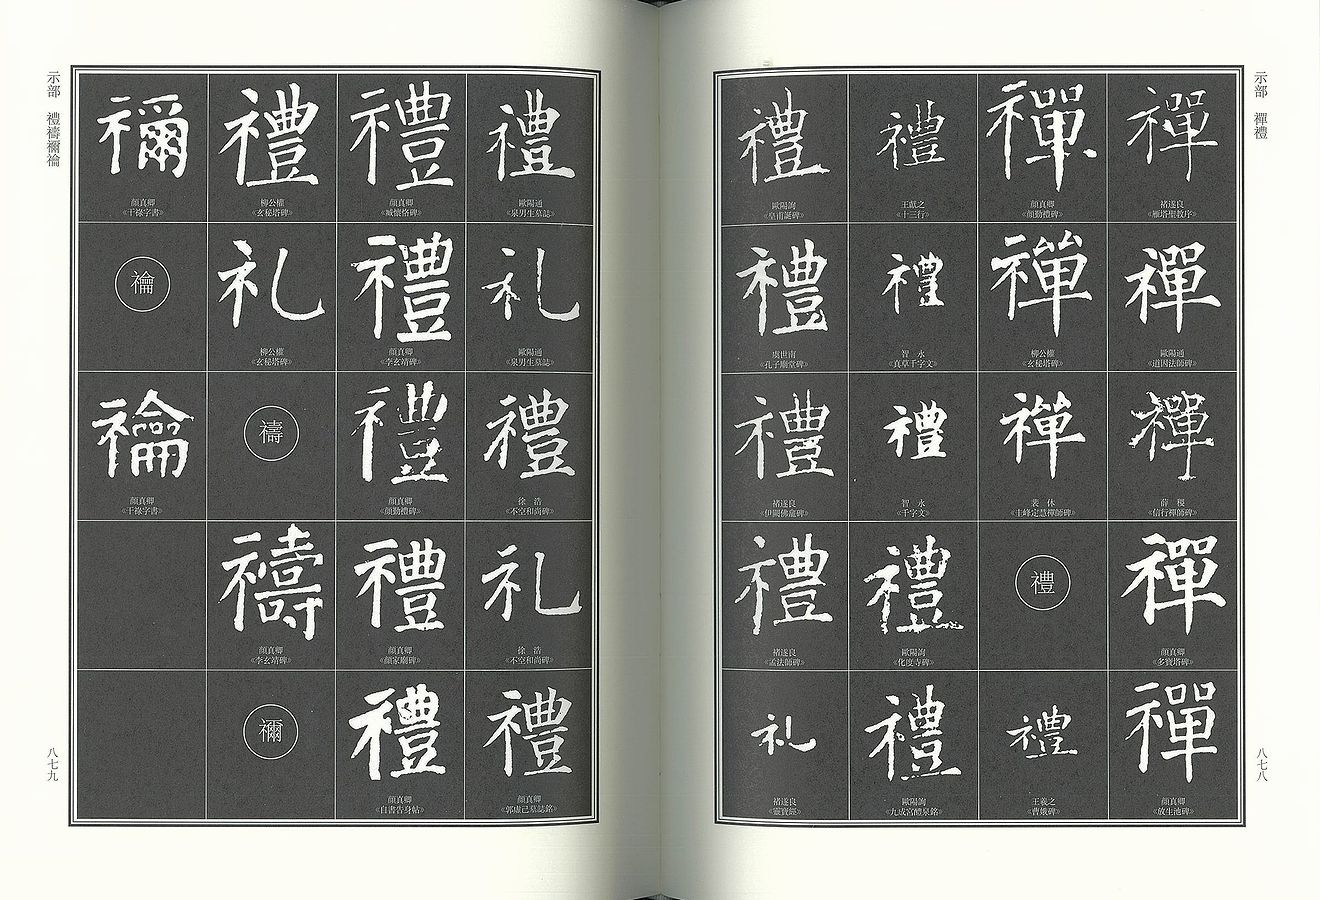 示部　禪禮
八七八
禪
褚遂良
《雁塔聖教序》
禪
歐陽通
《道因法師碑》
禪
薛　稷
《信行禪師碑》
禪
顏真卿
《多寶塔碑》
禪
顏真卿
《放生池碑》
禪
顏真卿
《顏勤禮碑》
禪
柳公權
《玄秘塔碑》
禪
裴　休
《圭峰定慧禪師碑》
禮
禮
王羲之
《曹娥碑》
禮
王獻之
《十三行》
禮
智　永
《真草千字文》
禮
智　永
《千字文》
禮
歐陽詢
《化度寺碑》
禮
歐陽詢
《九成宮醴泉銘》
禮
歐陽詢
《皇甫誕碑》
禮
虞世南
《孔子廟堂碑》
禮
褚遂良
《伊闕佛龕碑》
禮
褚遂良
《孟法師碑》
礼
褚遂良
《靈寶經》
示部　禮禱禰禴
八七九
禮
歐陽通
《泉男生墓誌》
礼
歐陽通
《泉男生墓誌》
禮
徐　浩
《不空和尚碑》
礼
徐　浩
《不空和尚碑》
禮
顏真卿
《郭虛己墓誌銘》
禮
顏真卿
《臧懷恪碑》
禮
顏真卿
《李玄靖碑》
禮
顏真卿
《顏勤禮碑》
禮
顏真卿
《顏家廟碑》
禮
顏真卿
《自書告身帖》
禮
柳公權
《玄秘塔碑》
礼
柳公權
《玄秘塔碑》
禱
禱
顏真卿
《李玄靖碑》
禰
禰
顏真卿
《干祿字書》
禴
禴
顏真卿
《干祿字書》